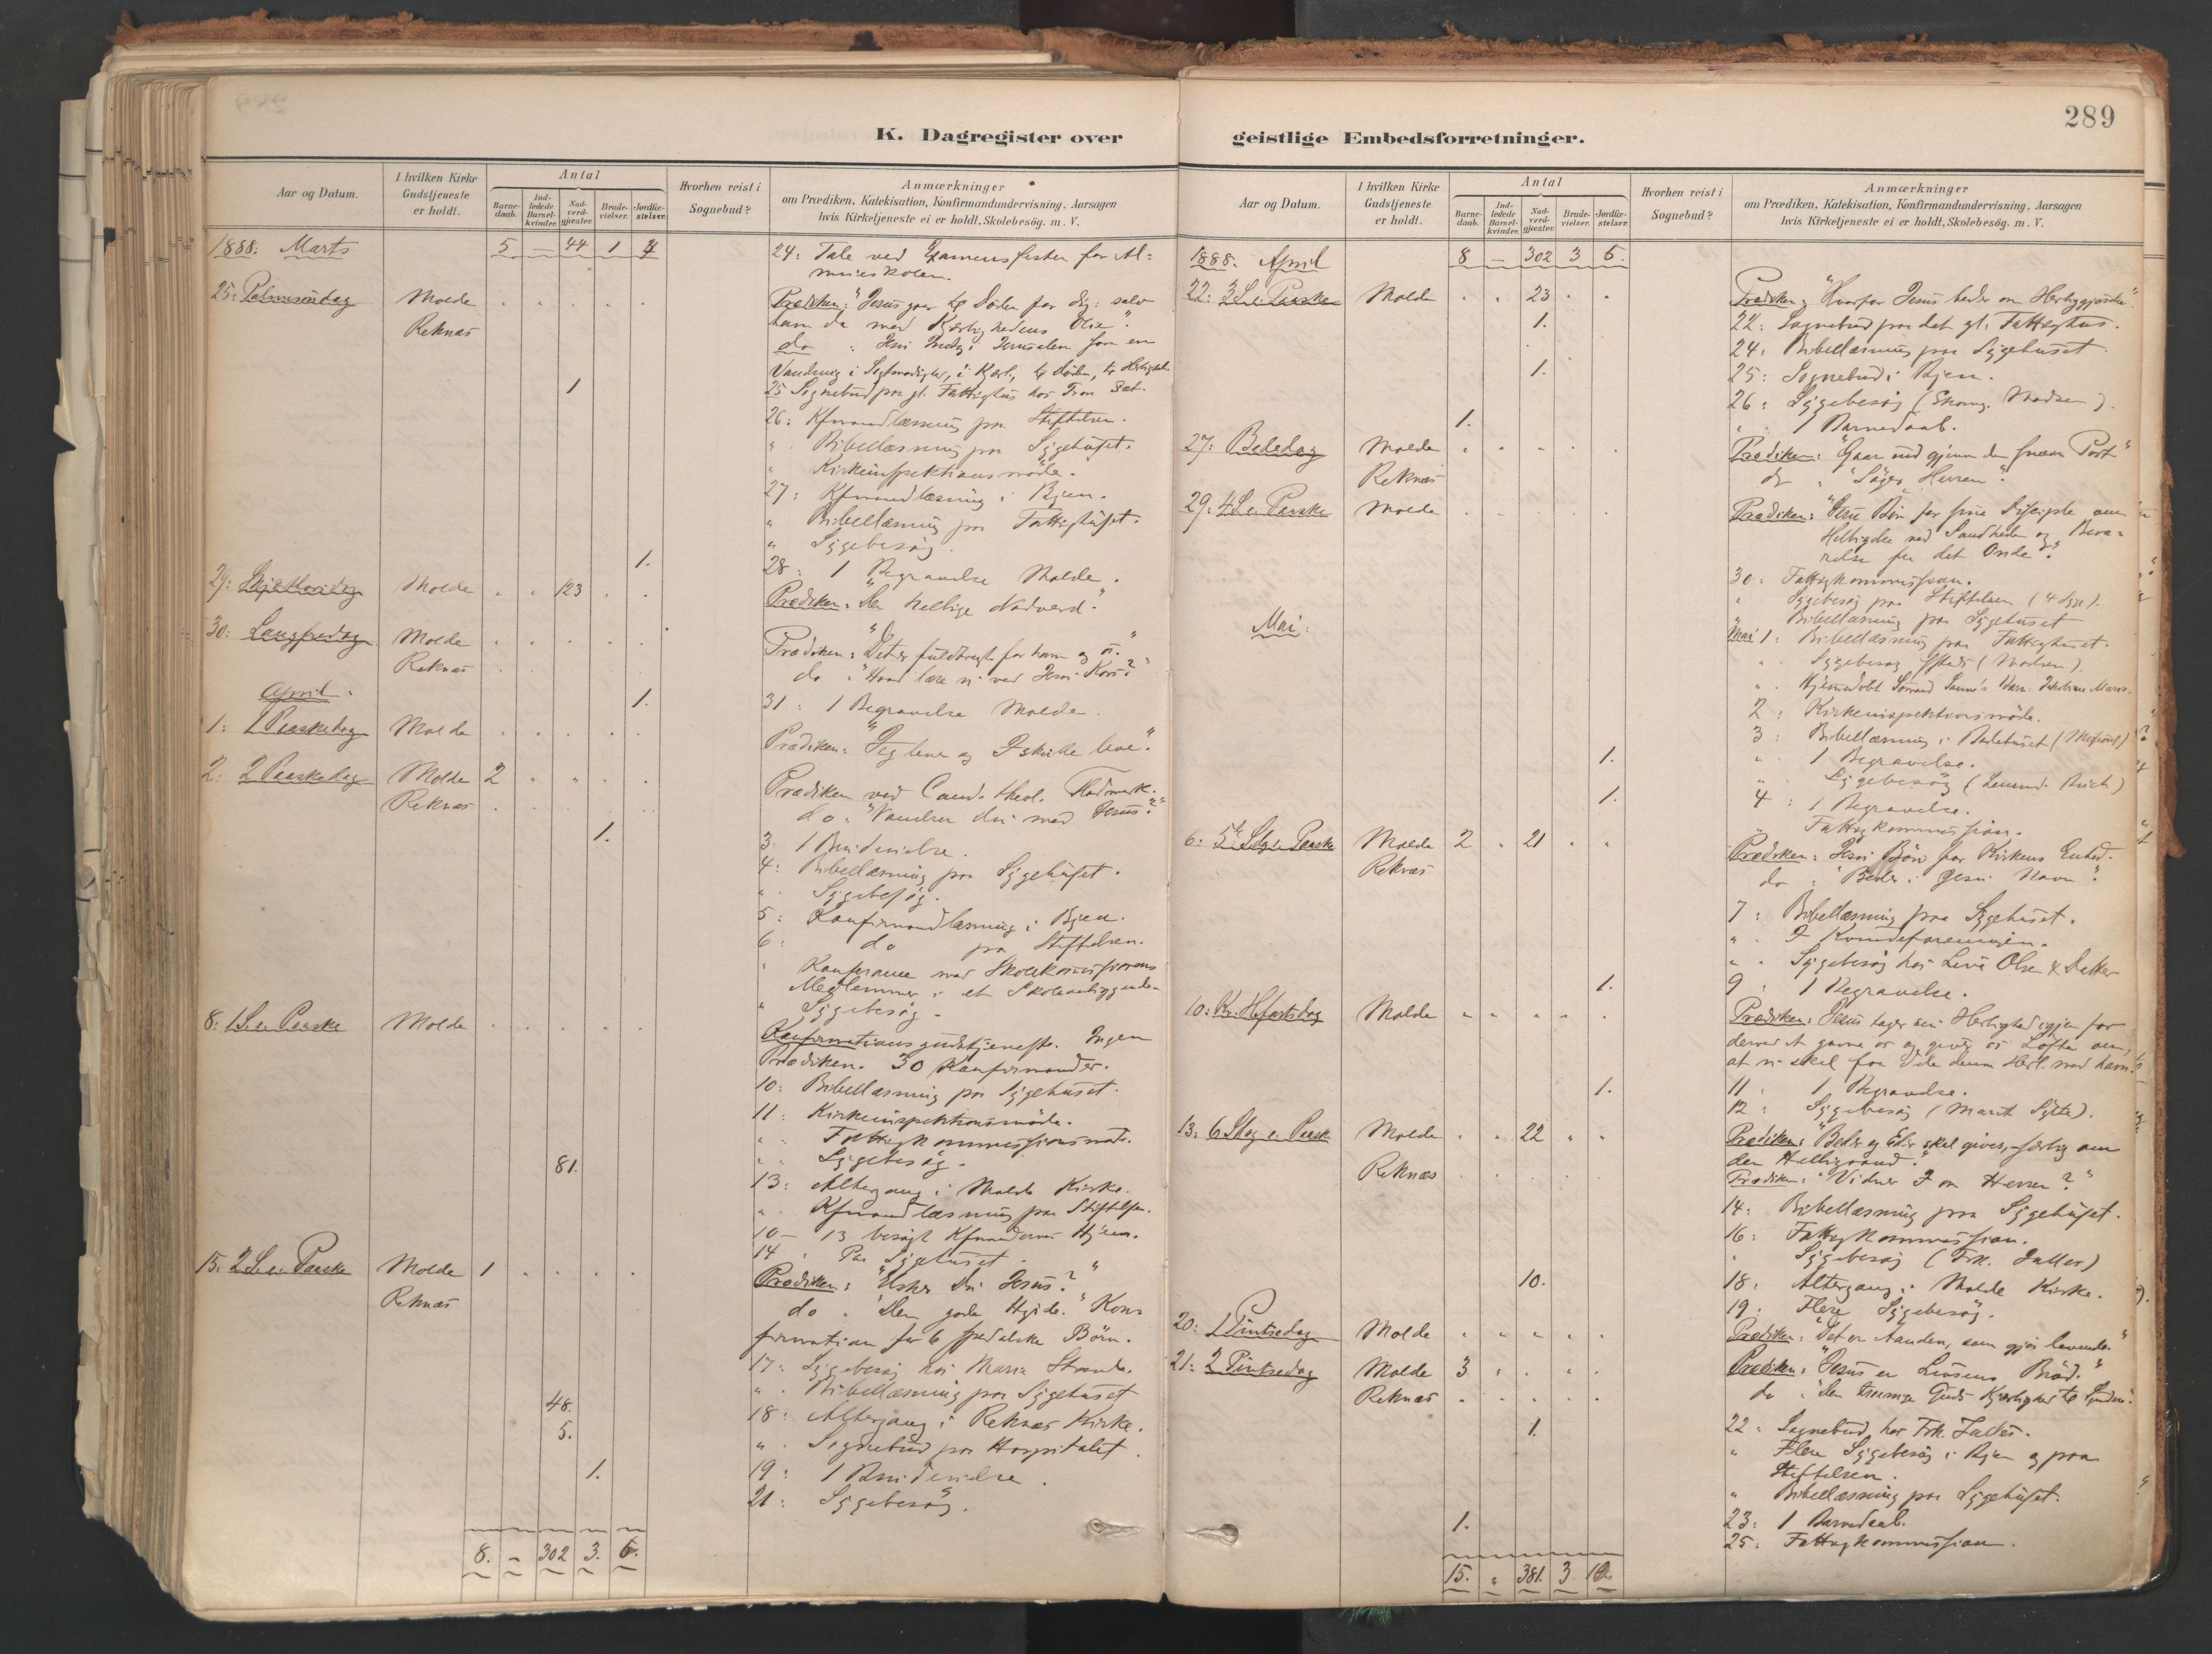 K. Dagregister over
Aar og Datum.
I hvilken Kirke Gudstjeneste er holdt.
Antal
Barne-daab.
Ind-ledede Barsel-kvinder.
Nad-verd-gjester.
Brude-vielser.
Jordfæ-stelser.
Hvorhen reist i Sognebud?
Anmærkninger
om Prædiken, Katekisation, Konfirmandundervisning, Aarsagen
hvis Kirketjeneste ei er holdt, Skolebesög. m. V.
1888. Marts 5 — 44 1 4
24: Tale ved Examensfesten for Al-
mueskolen.
25: Palmesöndag Molde
Prædiken: "Jesus gaar til Döden for dig: salv
Reknæs
ham da med Kjærlighedens Olie".
do : Jesu Indtog i Jerusalem som en
Vandring i Sagtmodighed, i Kjærl., til Döden, til Herlighed.
1
25 Sognebud paa gl. Fattighus hos
26: Kfmandlæsning paa Stiftelsen.
" Bibellæsning paa Sygehuset.
" Kirkeinspektionsmöde.
27: Kfmandlæsning i Byen.
" Bibellæsning paa Fattighuset.
" Sygebesög.
1.
28: 1 Begravelse Molde.
29: Skjærthorsdag Molde 123
Prædiken: "Den hellige Nadverd."
30: Langfredag Molde
Prædiken: "Det er fuldbragt for ham og os."
Reknæs
do : "Hvad lære vi ved Jesu Kors?"
April.
1.
31: 1 Begravelse Molde.
1: 1 Paaskedag Molde
Prædiken: "Jeg lever og I skulle leve".
2: 2 Paaskedag Molde 2
Prædiken ved Cand. theol.
Reknæs
do : "Vandrer du med Jesus?"
1.
3: 1 Brudevielse.
4: Bibellæsning paa Sygehuset.
" Sygebesög.
5: Konfirmandlæsning i Byen.
6: do paa Stiftelsen.
" Konferance med Skolekommissionens
Medlemmer i et Skoleanliggende.
" Sygebesög.
8: 1 S. e. Paaske Molde
Konfirmationsgudstjeneste. Ingen
Prædiken. 30 Konfirmander.
10: Bibellæsning paa Sygehuset.
11: Kirkeinspektionsmöde.
" Fattigkommissionsmöde.
" Sygebesög.
81.
13: Altergang i Molde Kirke.
" Kfmandlæsning paa Stiftelsen.
10 — 13 besögt Kfmandernes Hjem.
14 : Paa Sygehuset.
15: 2 S. e. Paaske Molde 1
Prædiken: "Elsker du Jesus?"
Reknæs
do : "Den gode Hyrde." Kon-
firmation for 6 spedalske Börn.
17: Sygebesög hos Maria Strande.
" Bibellæsning paa Sygehuset
48.
18: Altergang i Reknæs Kirke.
5.
" Sognebud paa Hospitalet.
1.
19: 1 Brudevielse.
21: Sygebesög.
8. — 302 3. 6.
289
geistlige Embedsforretninger.
Aar og Datum.
I hvilken Kirke Gudstjeneste er holdt.
Antal
Barne-daab.
Ind-ledede Barsel-kvinder.
Nad-verd-gjester.
Brude-vielser.
Jordfæ-stelser.
Hvorhen reist i Sognebud?
Anmærkninger
om Prædiken, Katekisation, Konfirmandundervisning, Aarsagen
hvis Kirketjeneste ei er holdt, Skolebesög. m. V.
1888. April 8 — 302 3 6.
22: 3 S. e. Paaske Molde 23
Prædiken: "Hvorfor Jesus beder om Herliggjörelse".
1.
22: Sognebud paa det gl. Fattighus.
24: Bibellæsning paa Sygehuset.
1.
25: Sognebud i Byen.
26: Sygebesög ( Madsen ).
1.
" 1 Barnedaab.
27: Bededag Molde
Prædiken: "Gaar ind gjennem den snevre Port"
Reknæs
do : "Söger Herren".
29: 4 S. e. Paaske Molde
Prædiken: "Jesu Bön for sine Disciple om
Helligelse ved Sandheden og Beva-
relse fra det Onde".
30: Fattigkommission.
" Sygebesög paa Stiftelsen (4 Syge).
" Bibellæsning paa Sygehuset
Mai:
Mai 1: Bibellæsning paa Fattighuset.
" Sygebesög (Madsen).
" Hjemmedöbt
2: Kirkeinspektionsmöde.
3: Bibellæsning i Bedehuset (Missions)
1.
" 1 Begravelse.
" Sygebesög
1.
4: 1 Begravelse.
" Fattigkommission.
6: 5te S. e. Paaske Molde 2 21
Prædiken: Jesu Bön for Kirkens Enhed.
Reknæs
do : "Beder i Jesu Navn".
7: Bibellæsning paa Sygehuset.
" I Kvindeforeningen.
" Sygebesög hos Olsen & Datter
1.
9: 1 Begravelse.
10: Kr. Hfartsdag Molde
Prædiken: Jesus tager sin Herlighed igjen for
derved at gavne os og give os Löfte om,
at vi skal faa Dele denne Herl. med ham.
1.
11: 1 Begravelse.
12: Sygebesög (Marit ).
13: 6 Sög e. Paaske Molde 22
Prædiken: "Beder og Eder skal gives, særlig om
den Helligaand."
Reknæs
Prædiken: "Vidner I om Herren?"
14: Bibellæsning paa Sygehuset.
16: Fattigkommission.
" Sygebesög (Frk. )
10.
18: Altergang i Molde Kirke.
19: Flere Sygebesög.
20: 1 Pintsedag Molde
Prædiken: "Det er Aanden, som gjör levende."
21: 2 Pintsedag Molde 3
Prædiken: "Jesus er Livsens Bröd."
Reknæs
do : "Den treenige Guds Kjærlighed til Synderen".
1.
22: Sognebud hos Frk.
" Flere Sygebesög i Byen og paa
Stiftelsen.
" Bibellæsning paa Sygehuset.
1.
23: 1 Barnedaab.
25: Fattigkommission.
15. " 381. 3 10.